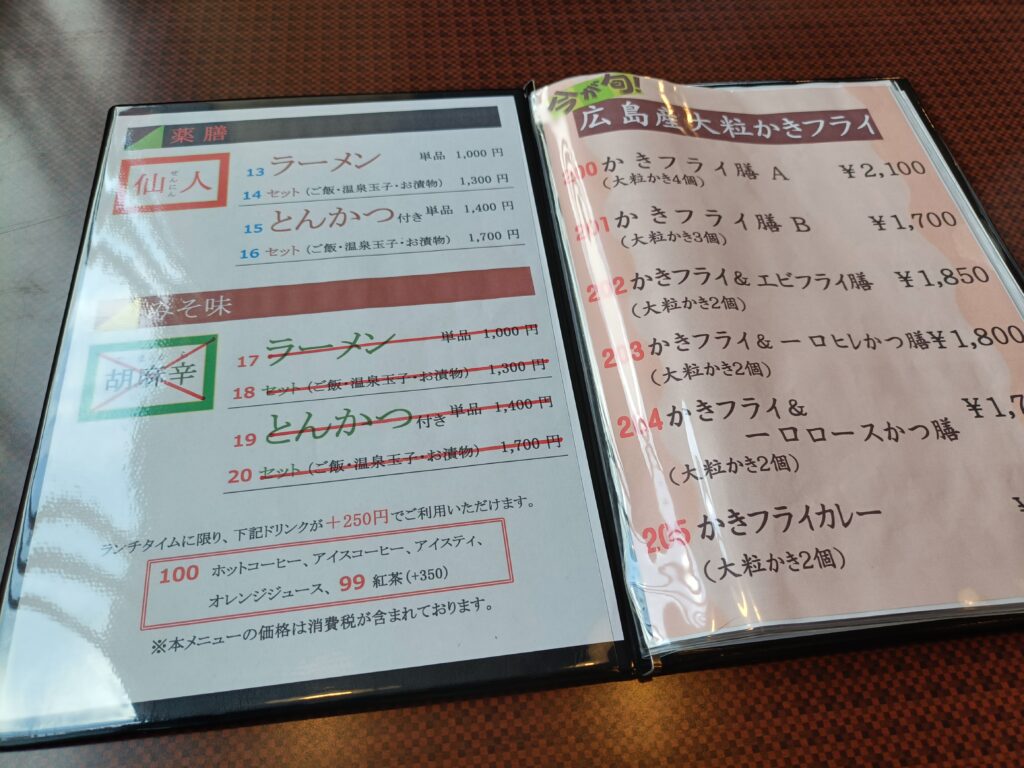 薬膳
せんにん
仙人
13 ラーメン 単品 1,000 円
14 セット (ご飯・温泉玉子・お漬物) 1,300 円
15 とんかつ付き 単品 1,400 円
16 セット (ご飯・温泉玉子・お漬物) 1,700 円
みそ味
胡麻辛
17 ラーメン 単品 1,000 円
18 セット (ご飯・温泉玉子・お漬物) 1,300 円
19 とんかつ付き 単品 1,400 円
20 セット (ご飯・温泉玉子・お漬物) 1,700 円
ランチタイムに限り、下記ドリンクが+250円でご利用いただけます。
100 ホットコーヒー、アイスコーヒー、アイスティ、
オレンジジュース、99 紅茶(+350)
※本メニューの価格は消費税が含まれております。
今が旬!
広島産大粒かきフライ
200 かきフライ膳 A ¥2,100
(大粒かき4個)
201 かきフライ膳 B ¥1,700
(大粒かき3個)
202 かきフライ&エビフライ膳 ¥1,850
(大粒かき2個)
203 かきフライ&一口ヒレかつ膳 ¥1,800
(大粒かき2個)
204 かきフライ& ¥1,7
一口ロースかつ膳
(大粒かき2個)
205 かきフライカレー ¥
(大粒かき2個)